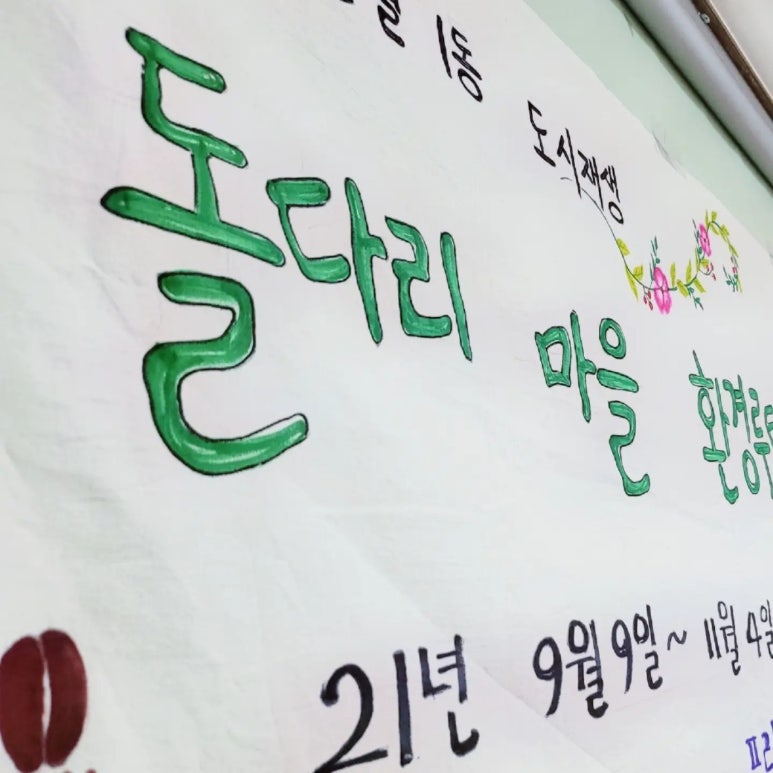 동 도시재생
돌다리 마을 환경
21년 9월 9일 ~ 11월 4일